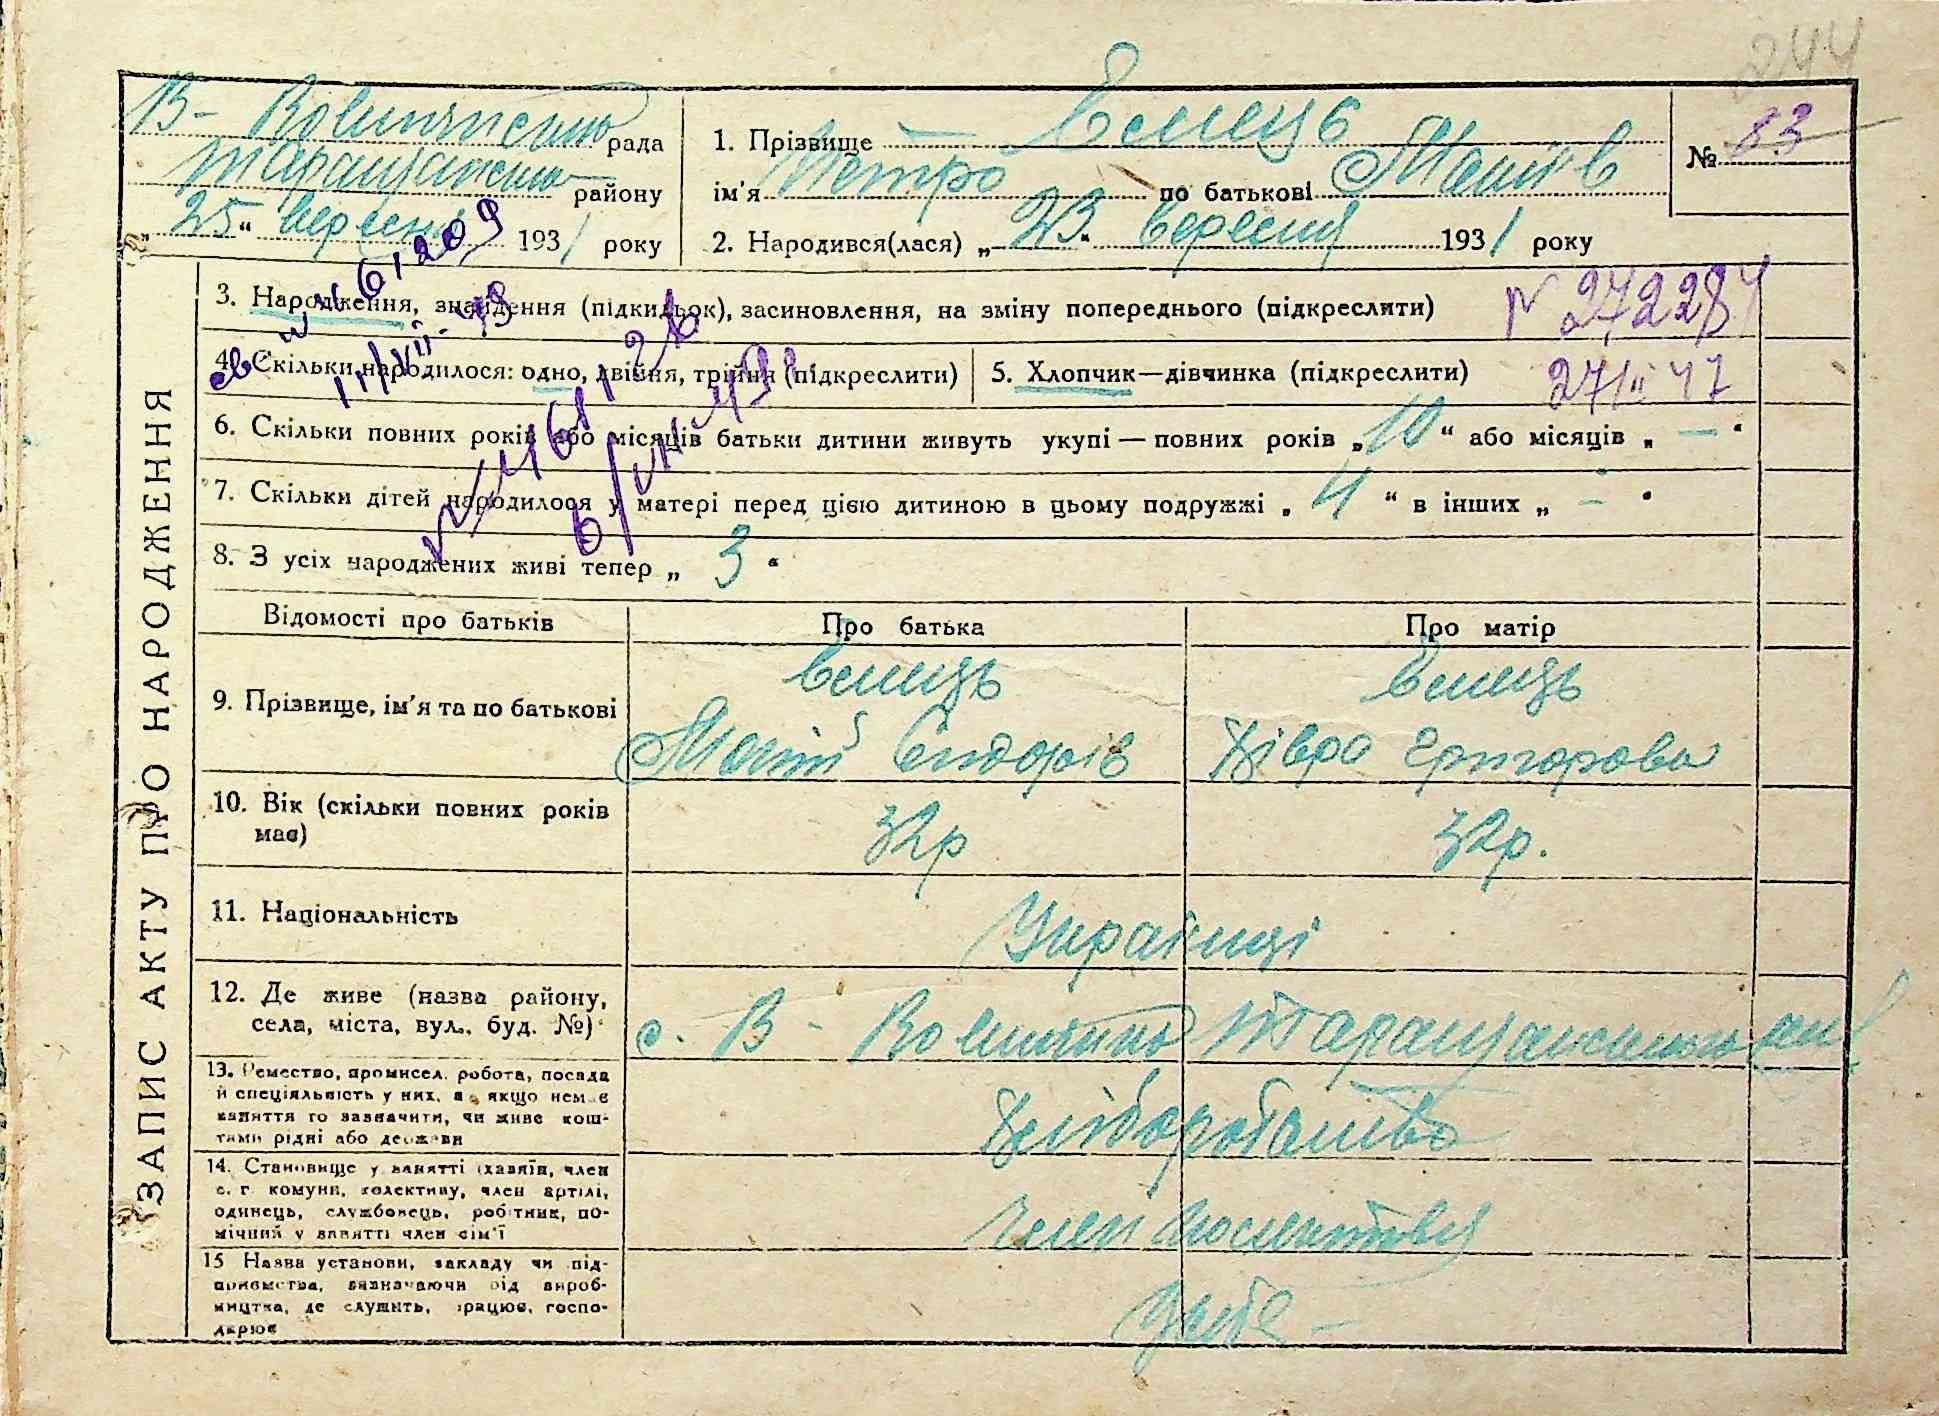 244
В- Вовнянська рада
Таращанського району
„25“ вересня 1931 року
1. Прізвище Ємець
ім'я Петро по батькові Матіїв
2. Народився(лася) „23“ вересня 1931 року
№ 83
ЗАПИС АКТУ ПРО НАРОДЖЕННЯ
3. Народження, знайдення (підкидьок), засиновлення, на зміну попереднього (підкреслити)
4. Скільки народилося: одно, двійня, трійня (підкреслити)
5. Хлопчик—дівчинка (підкреслити)
27/II 47
6. Скільки повних років або місяців батьки дитини живуть укупі — повних років „10“ або місяців „—“
7. Скільки дітей народилося у матері перед цією дитиною в цьому подружжі „4“ в інших „-“
8. З усіх народжених живі тепер „3“
Відомості про батьків
Про батька
Про матір
9. Прізвище, ім'я та по батькові
Ємець
Сидорів
Ємець
Григорова
10. Вік (скільки повних років має)
32р
32р.
11. Національність
Українці
12. Де живе (назва району, села, міста, вул., буд. №)
с. В - Вовнянка Таращанського
13. Ремество, промисел, робота, посада
й спеціяльність у них, а якщо немає
заняття то зазначити, чи живе кош-
тами рідні або держави
Хліборобство
14. Становище у занятті (хазяїн, член
с. г. комуни, колективу, член артілі,
одинець, службовець, робітник, по-
мічний у занятті член сім'ї
член
15 Назва установи, закладу чи під-
приємства, зазначаючи рід вироб-
ництва, де служить, працює, госпо-
дарює
У себе -